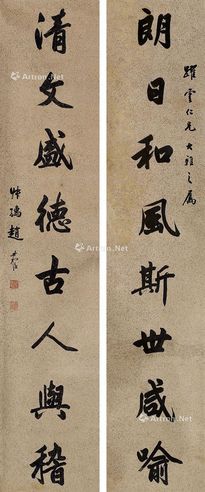 躍雲仁兄大雅之屬
朗日和風斯世咸喻
清文盛德古人與稽
趙世駿
Artron.Net
Artron.Net
Artron.Net
Artron.Net